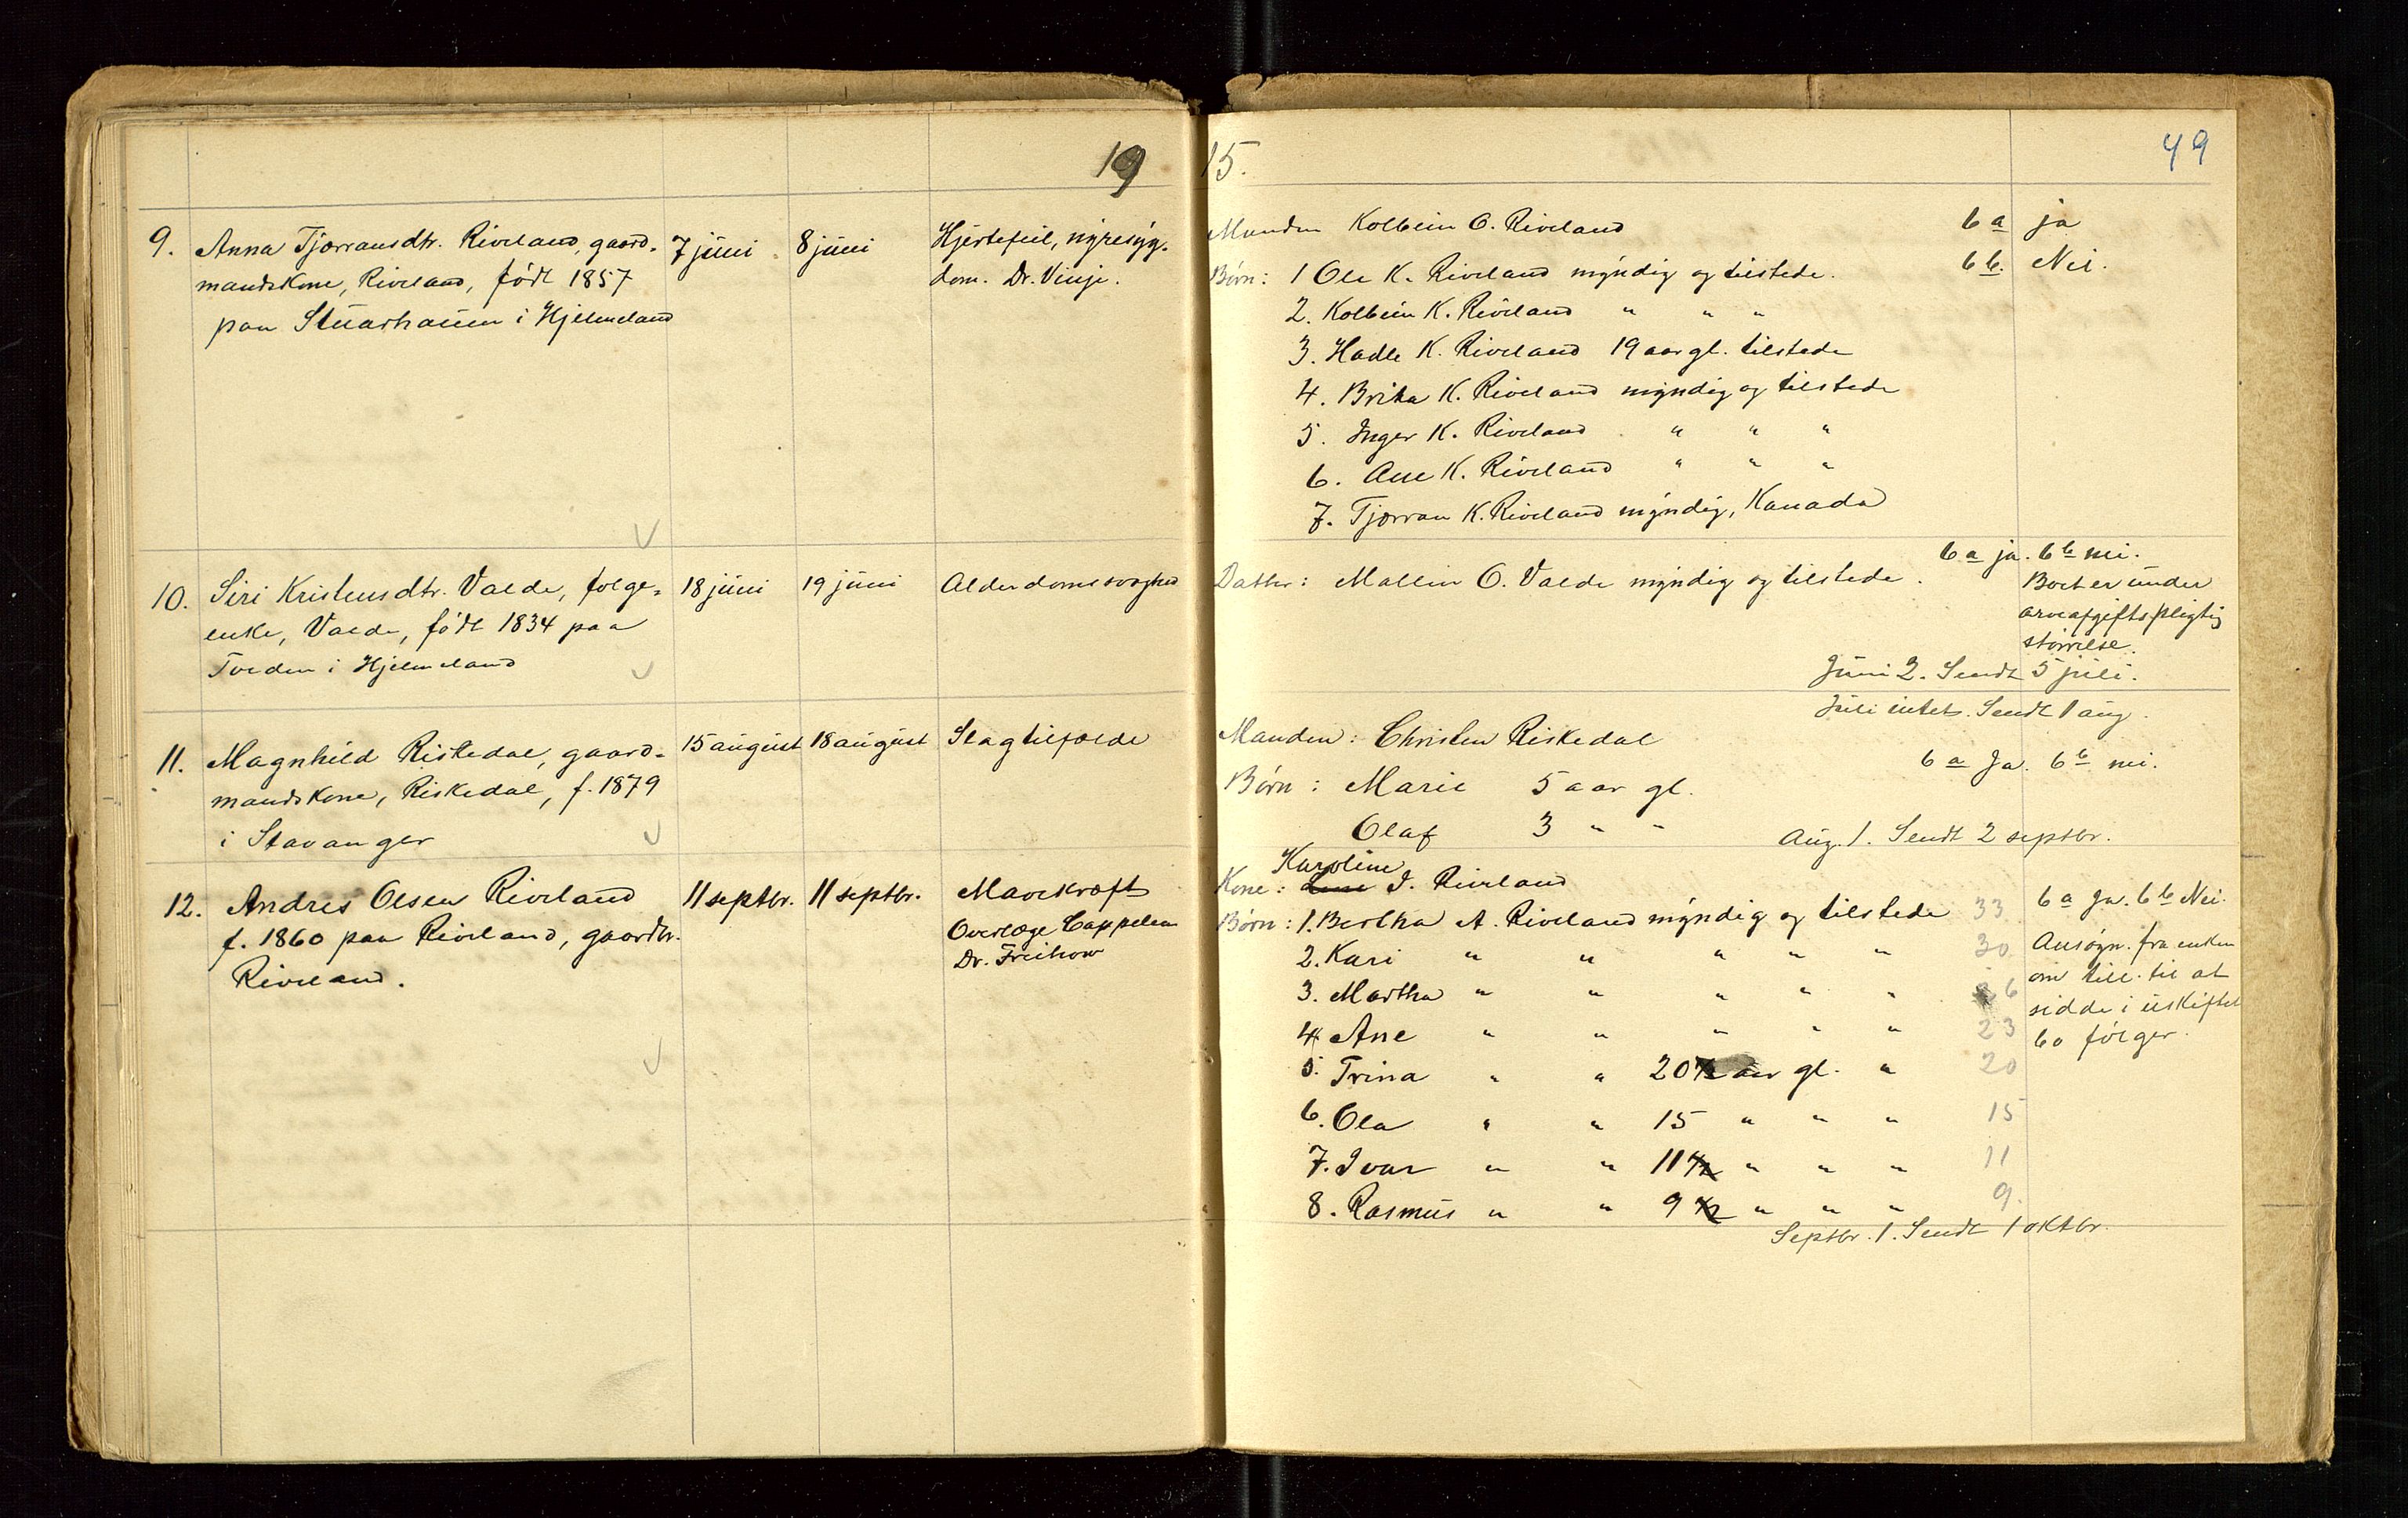 1915.
49
9. Anna Tjærransdtr. Riveland, gaard-
mandskone, Riveland, født 1857
paa Stuarhauen i Hjelmeland
7 juni
8 juni
Hjertefeil, nyresyg-
dom. Dr. Vinje.
Manden Kolbein O. Riveland
Børn: 1 Ole K. Riveland myndig og tilstede.
2. Kolbein K. Riveland " " "
3. Hadle K. Riveland 19 aar gl. tilstede
4. Brita K. Riveland myndig og tilstede
5. Inger K. Riveland " " "
6. Ane K. Riveland " " "
7. Tjærran K. Riveland myndig, Kanada
6 a ja
6 b. Nei.
10. Siri Kristensdtr. Valde, folge-
enke, Valde, født 1834 paa
Tveden i Hjelmeland
18 juni
19 juni
Alderdomssvaghed
Datter: Mallin O. Valde myndig og tilstede.
6 a ja. 6 b nei.
Boet er under
arveafgiftspligtig
størrelse.
Juni 2. Sendt 5 juli.
Juli intet. Sendt 1 aug.
11. Magnhild Riskedal, gaard-
mandskone, Riskedal, f. 1879
i Stavanger
15 august
18 august
Slagtilfælde
Manden: Christen Riskedal
Børn: Marie 5 aar gl.
Olaf 3 " "
6 a Ja. 6 b nei.
Aug. 1. Sendt 2 septbr.
12. Andres Olsen Riveland
f. 1860 paa Riveland, gaardbr.
Riveland.
11 septbr.
11 septbr.
Mavekræft
Overlæge Cappelen
Dr. Freihow
Karoline
Kone: I. Riveland
Børn: 1. Bertha A. Riveland myndig og tilstede 33
2. Kari " " " " " 30
3. Martha " " " " " 26
4 Ane " " " " " 23
5. Trina " " 20 1/2 aar gl. " 20
6. Ola " " 15 " " " 15
7. Ivar " " 11 1/2 " " " 11
8. Rasmus " " 9 1/2 " " " 9.
6 a Ja. 6 b Nei.
Ansøgn. fra enken
om till. til at
sidde i uskiftet
bo følger.
Septbr. 1. Sendt 1 oktbr.